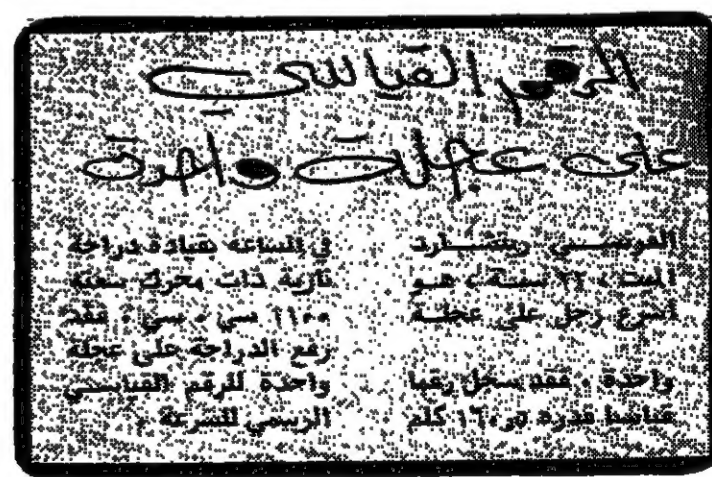 الرقم القياسي
على عجلة واحدة
الفرنسي ريتشارد
سنة ، هو
أسرع رجل على عجلة
واحدة ، فقد سجل رقما
قياسيا قدره كلم
في الساعة بقيادة دراجة
نارية ذات محرك سعته
١١٠٠ سي ، سي ، فقد
رفع الدراجة على عجلة
واحدة للرقم القياسي
الرسمي للسرعة .